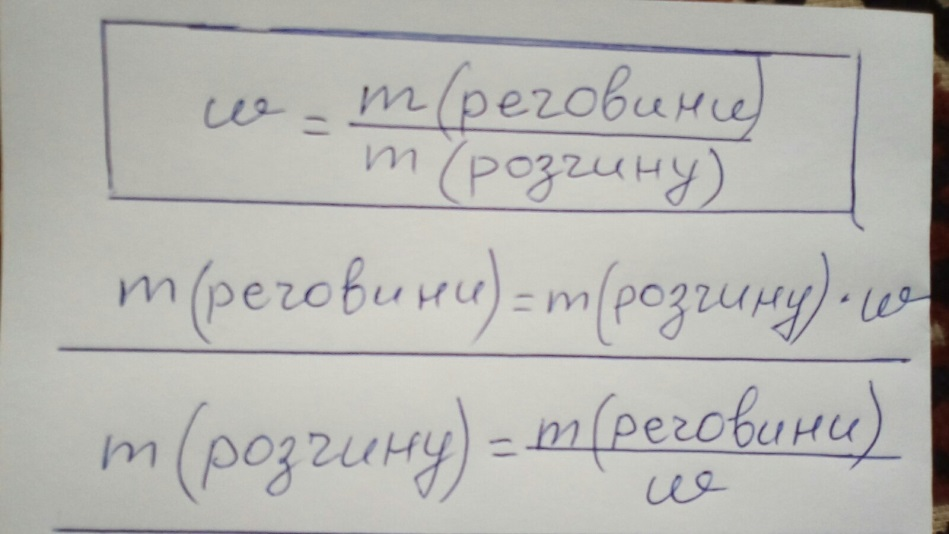 w = m (речовини) / m (розчину)
m (речовини) = m (розчину) · w
m (розчину) = m (речовини) / w